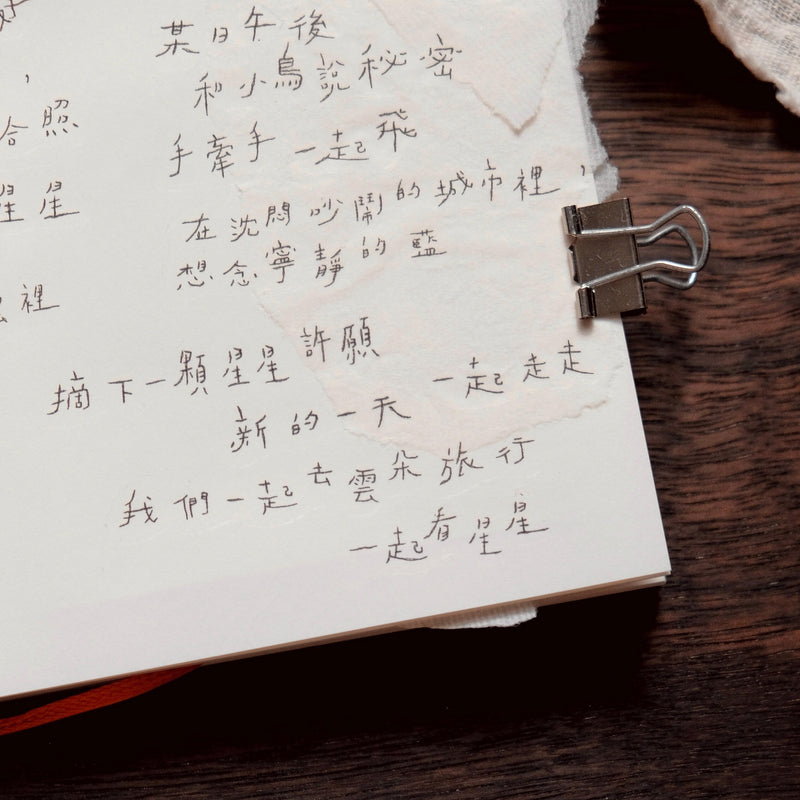 ，
合照
星星
裡
某日午後
和小鳥說秘密
手牽手一起飛
在沈悶吵鬧的城市裡，
想念寧靜的藍
摘下一顆星星許願
新的一天一起走走
我們一起去雲朵旅行
一起看星星